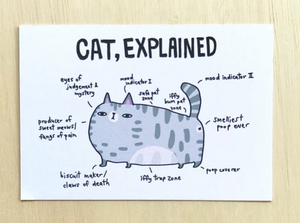 CAT, EXPLAINED
eyes of
judgement &
mystery
mood
indicator I
mood indicator II
safe pat
zone
iffy
bum pat
zone
producer of
sweet meows/
fangs of pain
smelliest
poop ever
biscuit maker/
claws of death
iffy trap zone
poop coverer